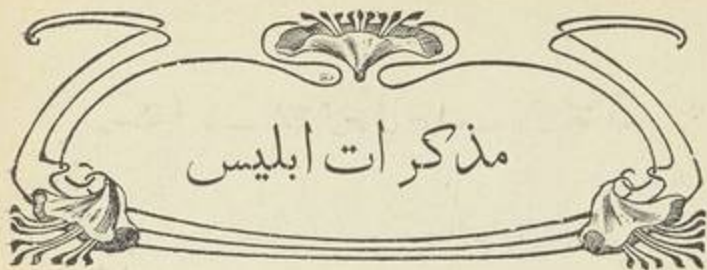 مذكرات ابليس